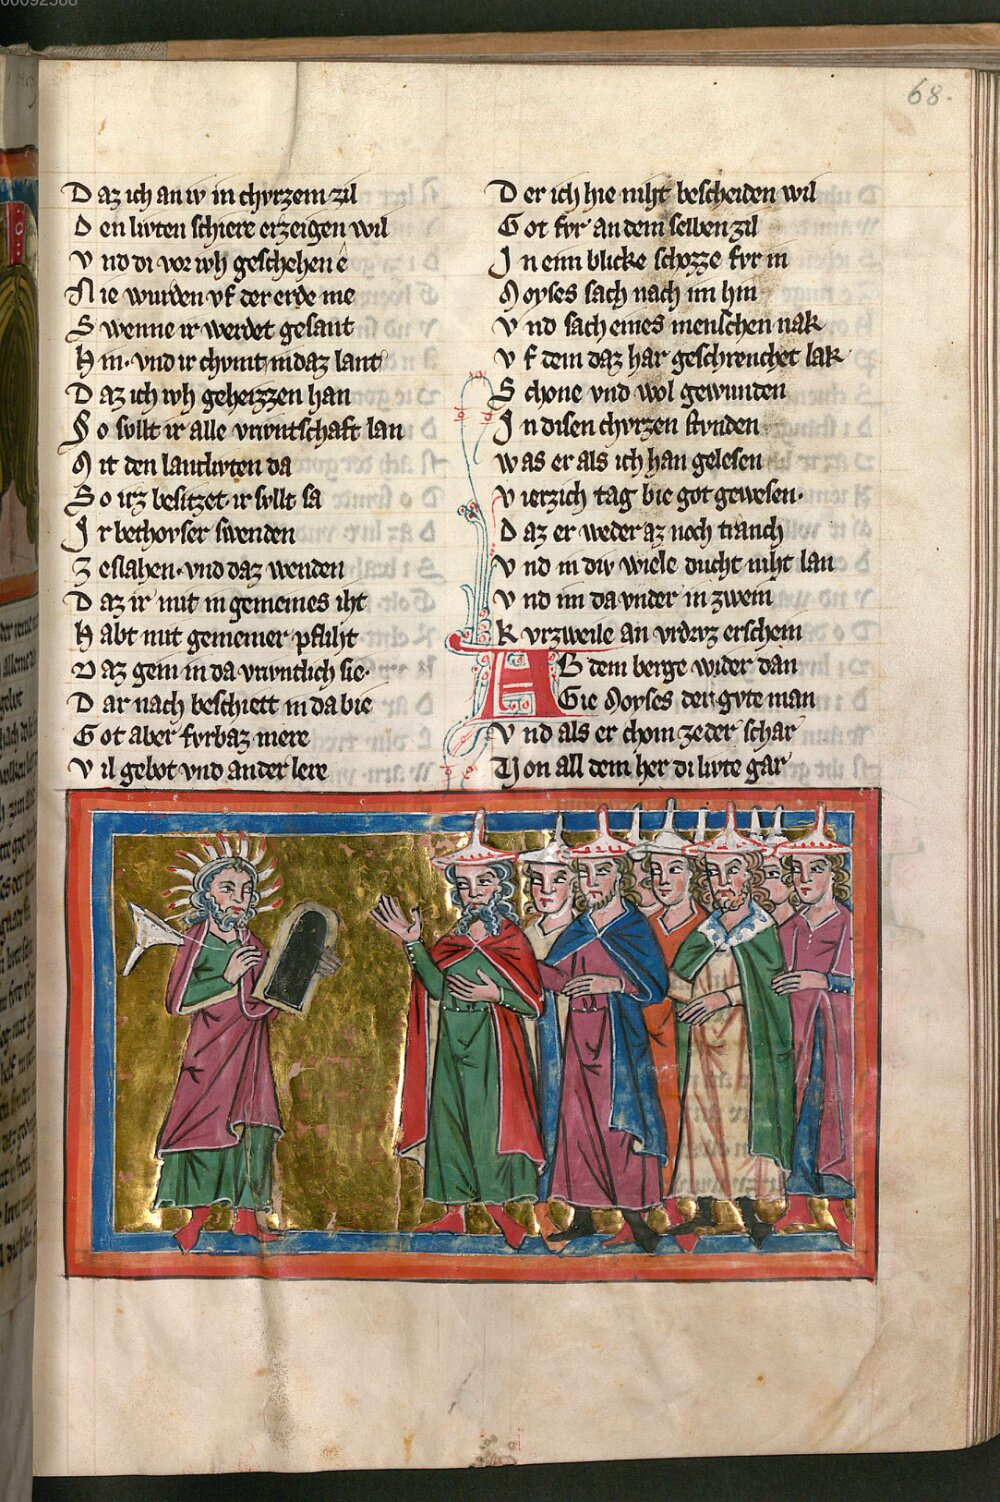 68.
Daz ich an iv in chvrzem zil
Den livten schiere erzeigen wil
Vnd di vor ivh geschehen ê
Nie wurden vf der erde me
Swenne ir werdet gesant
Hin· vnd ir chvmt in daz lant
Daz ich ivh geheizzen han
So svllt ir alle vrivntschaft lan
Mit den lantlivten da
So irz besitzet· ir svllt sa
Ir bethovser swenden
Zeslahen· vnd daz wenden
Daz ir mit in gemeines iht
Habt mit gemeiner pfliht
Daz gein in da vrivntlich sie·
Dar nach beschiett in da bie
Got aber fvrbaz mere
Vil gebot vnd ander lere
Der ich hie niht bescheiden wil
Got fvr an dem selben zil
In einn blicke schozze fvr in
Moyses sach nach im hin
Vnd sach eines menschen nak
Vf dem daz har geschrenchet lak
Schone vnd wol gewunden
In disen chvrzen stvnden
was er als ich han gelesen
Vierzich tag bie got gewesen·
Daz er weder az noch tranch
Vnd in div wiele ducht niht lan
Vnd im da vnder in zwein
Kvrzweile an vrdrvz erschein
AB dem berge wider dan
Gie Moyses der gvte man
Vnd als er chom zeder schar
Von all dem her di livte gar